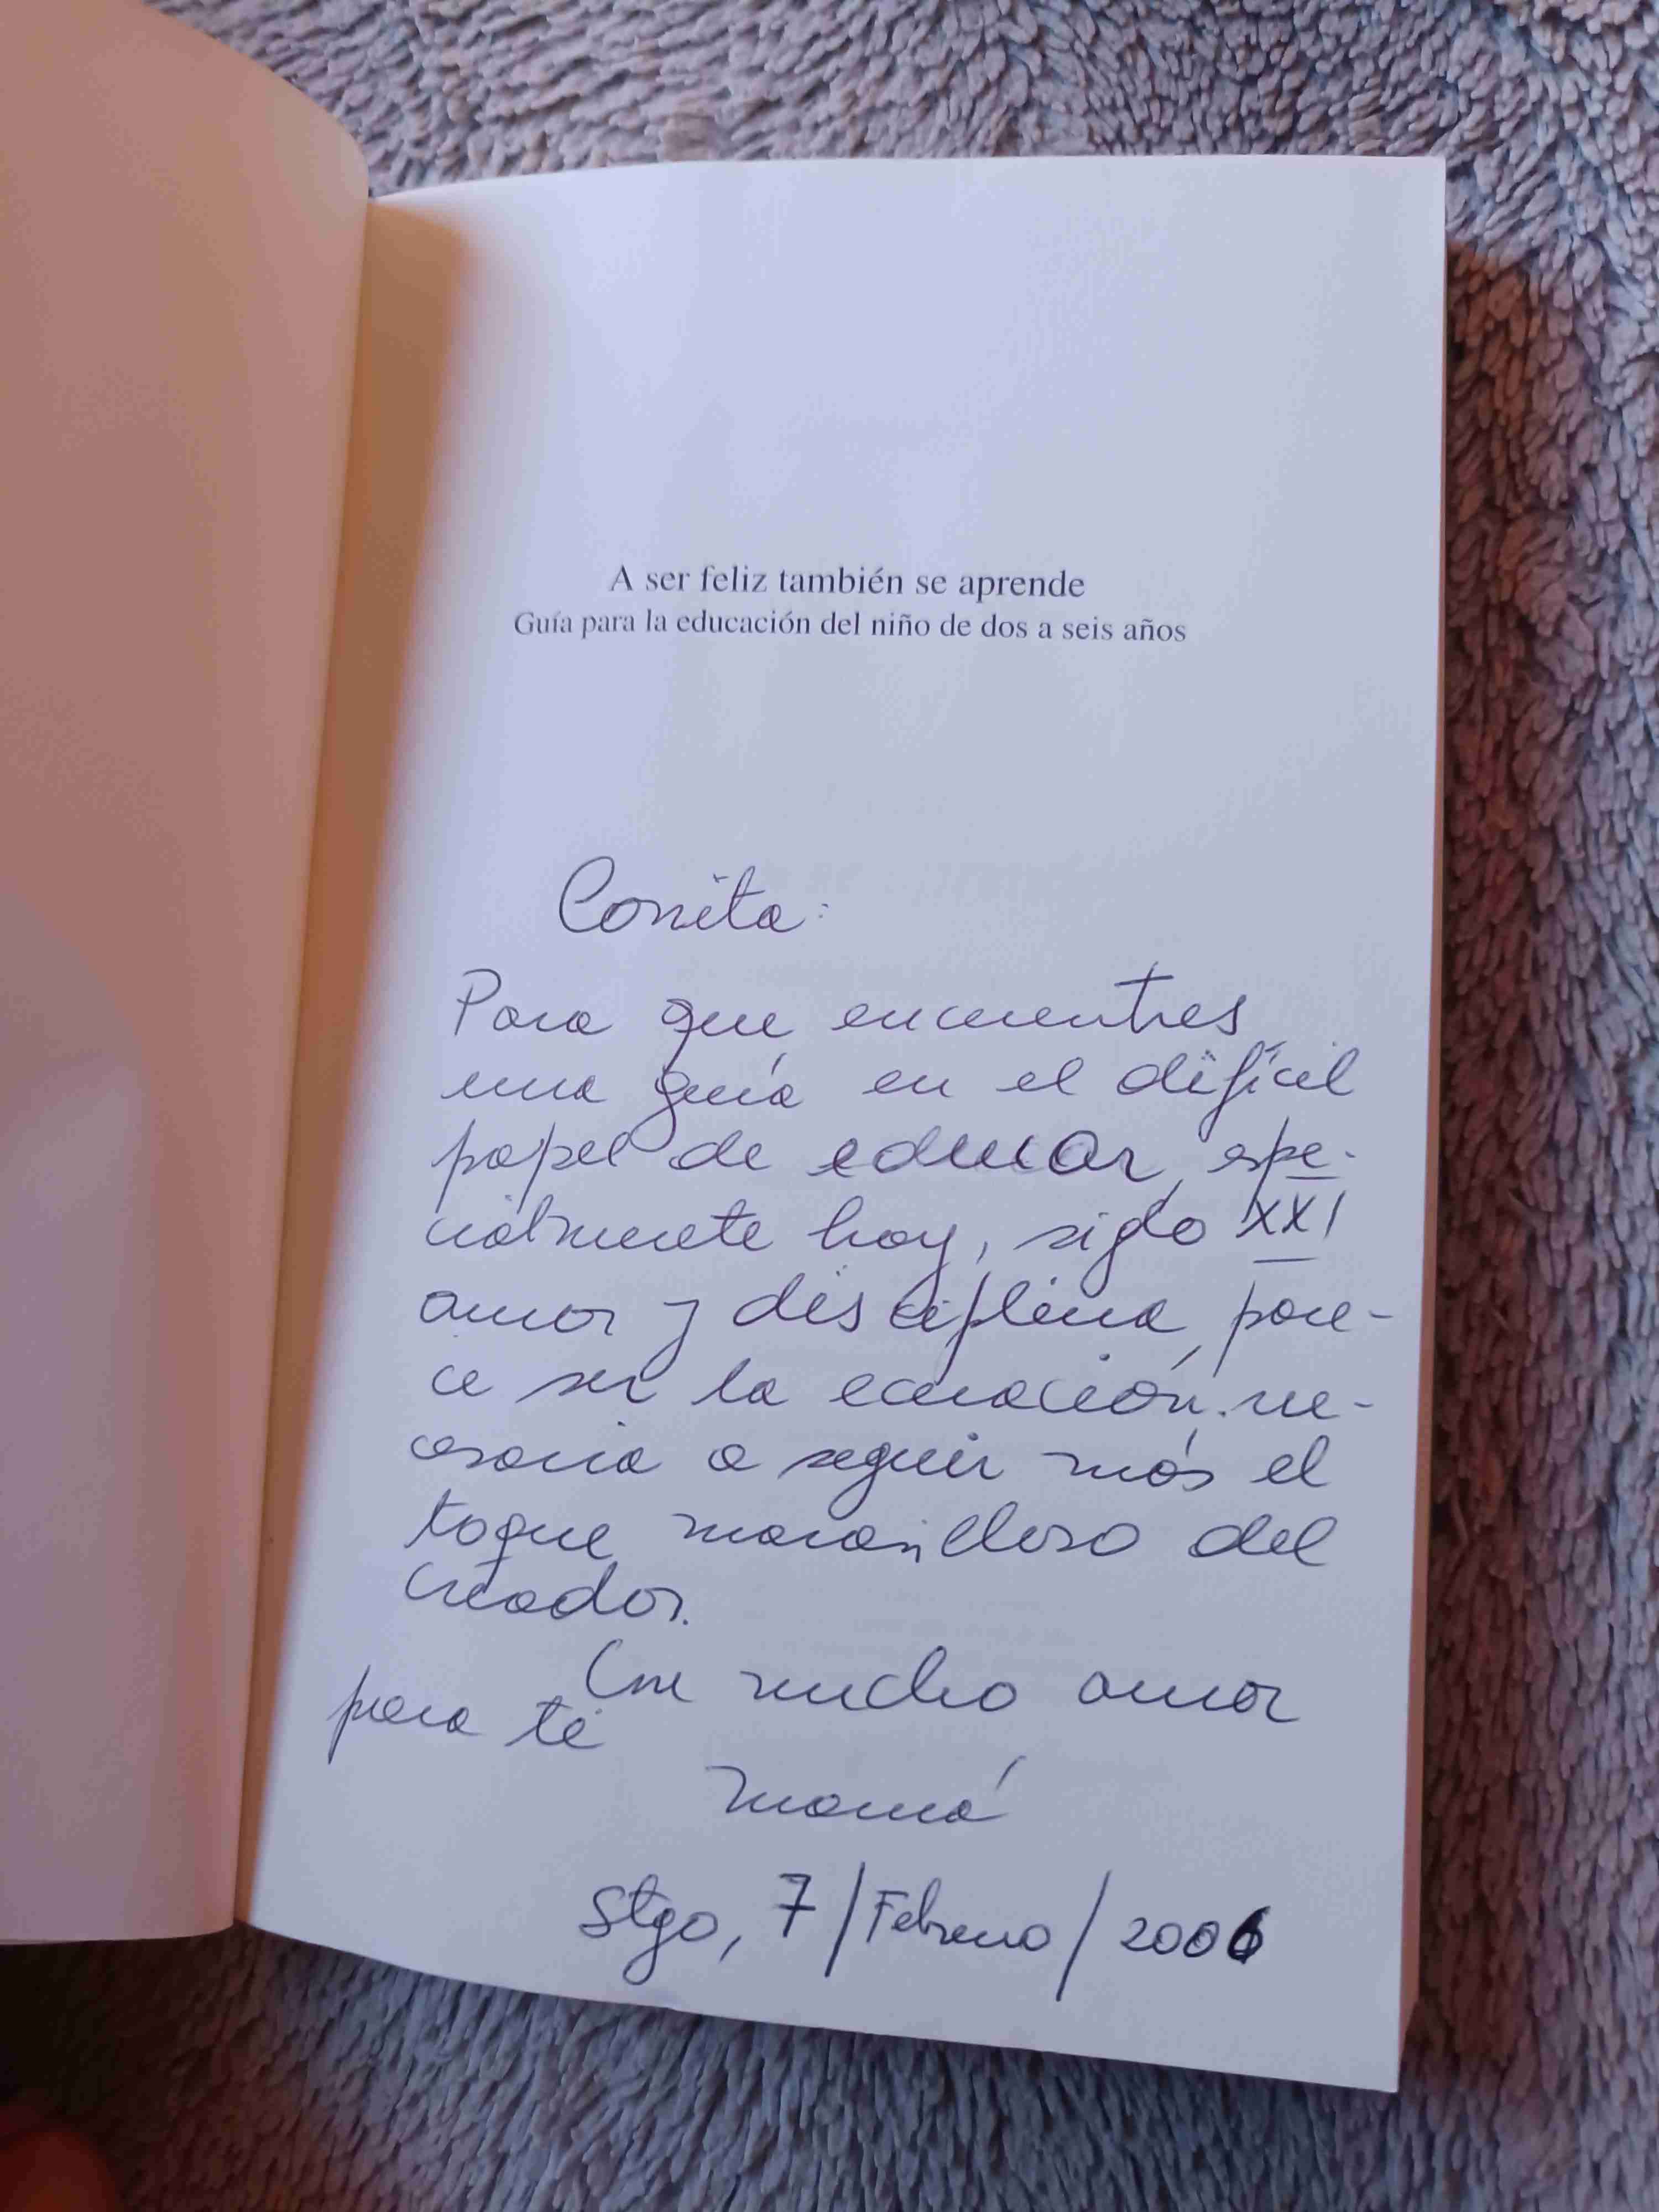 A ser feliz también se aprende
Guía para la educación del niño de dos a seis años
Conita:
Para que encuentres
una guía en el difícil
papel de educar, espe-
cialmente hoy, siglo XXI
amor y disciplina, pare-
ce ser la ecuación ne-
cesaria a seguir más el
toque maravilloso del
Creador.
Con mucho amor
para ti
Mamá
Stgo, 7/Febrero/2006